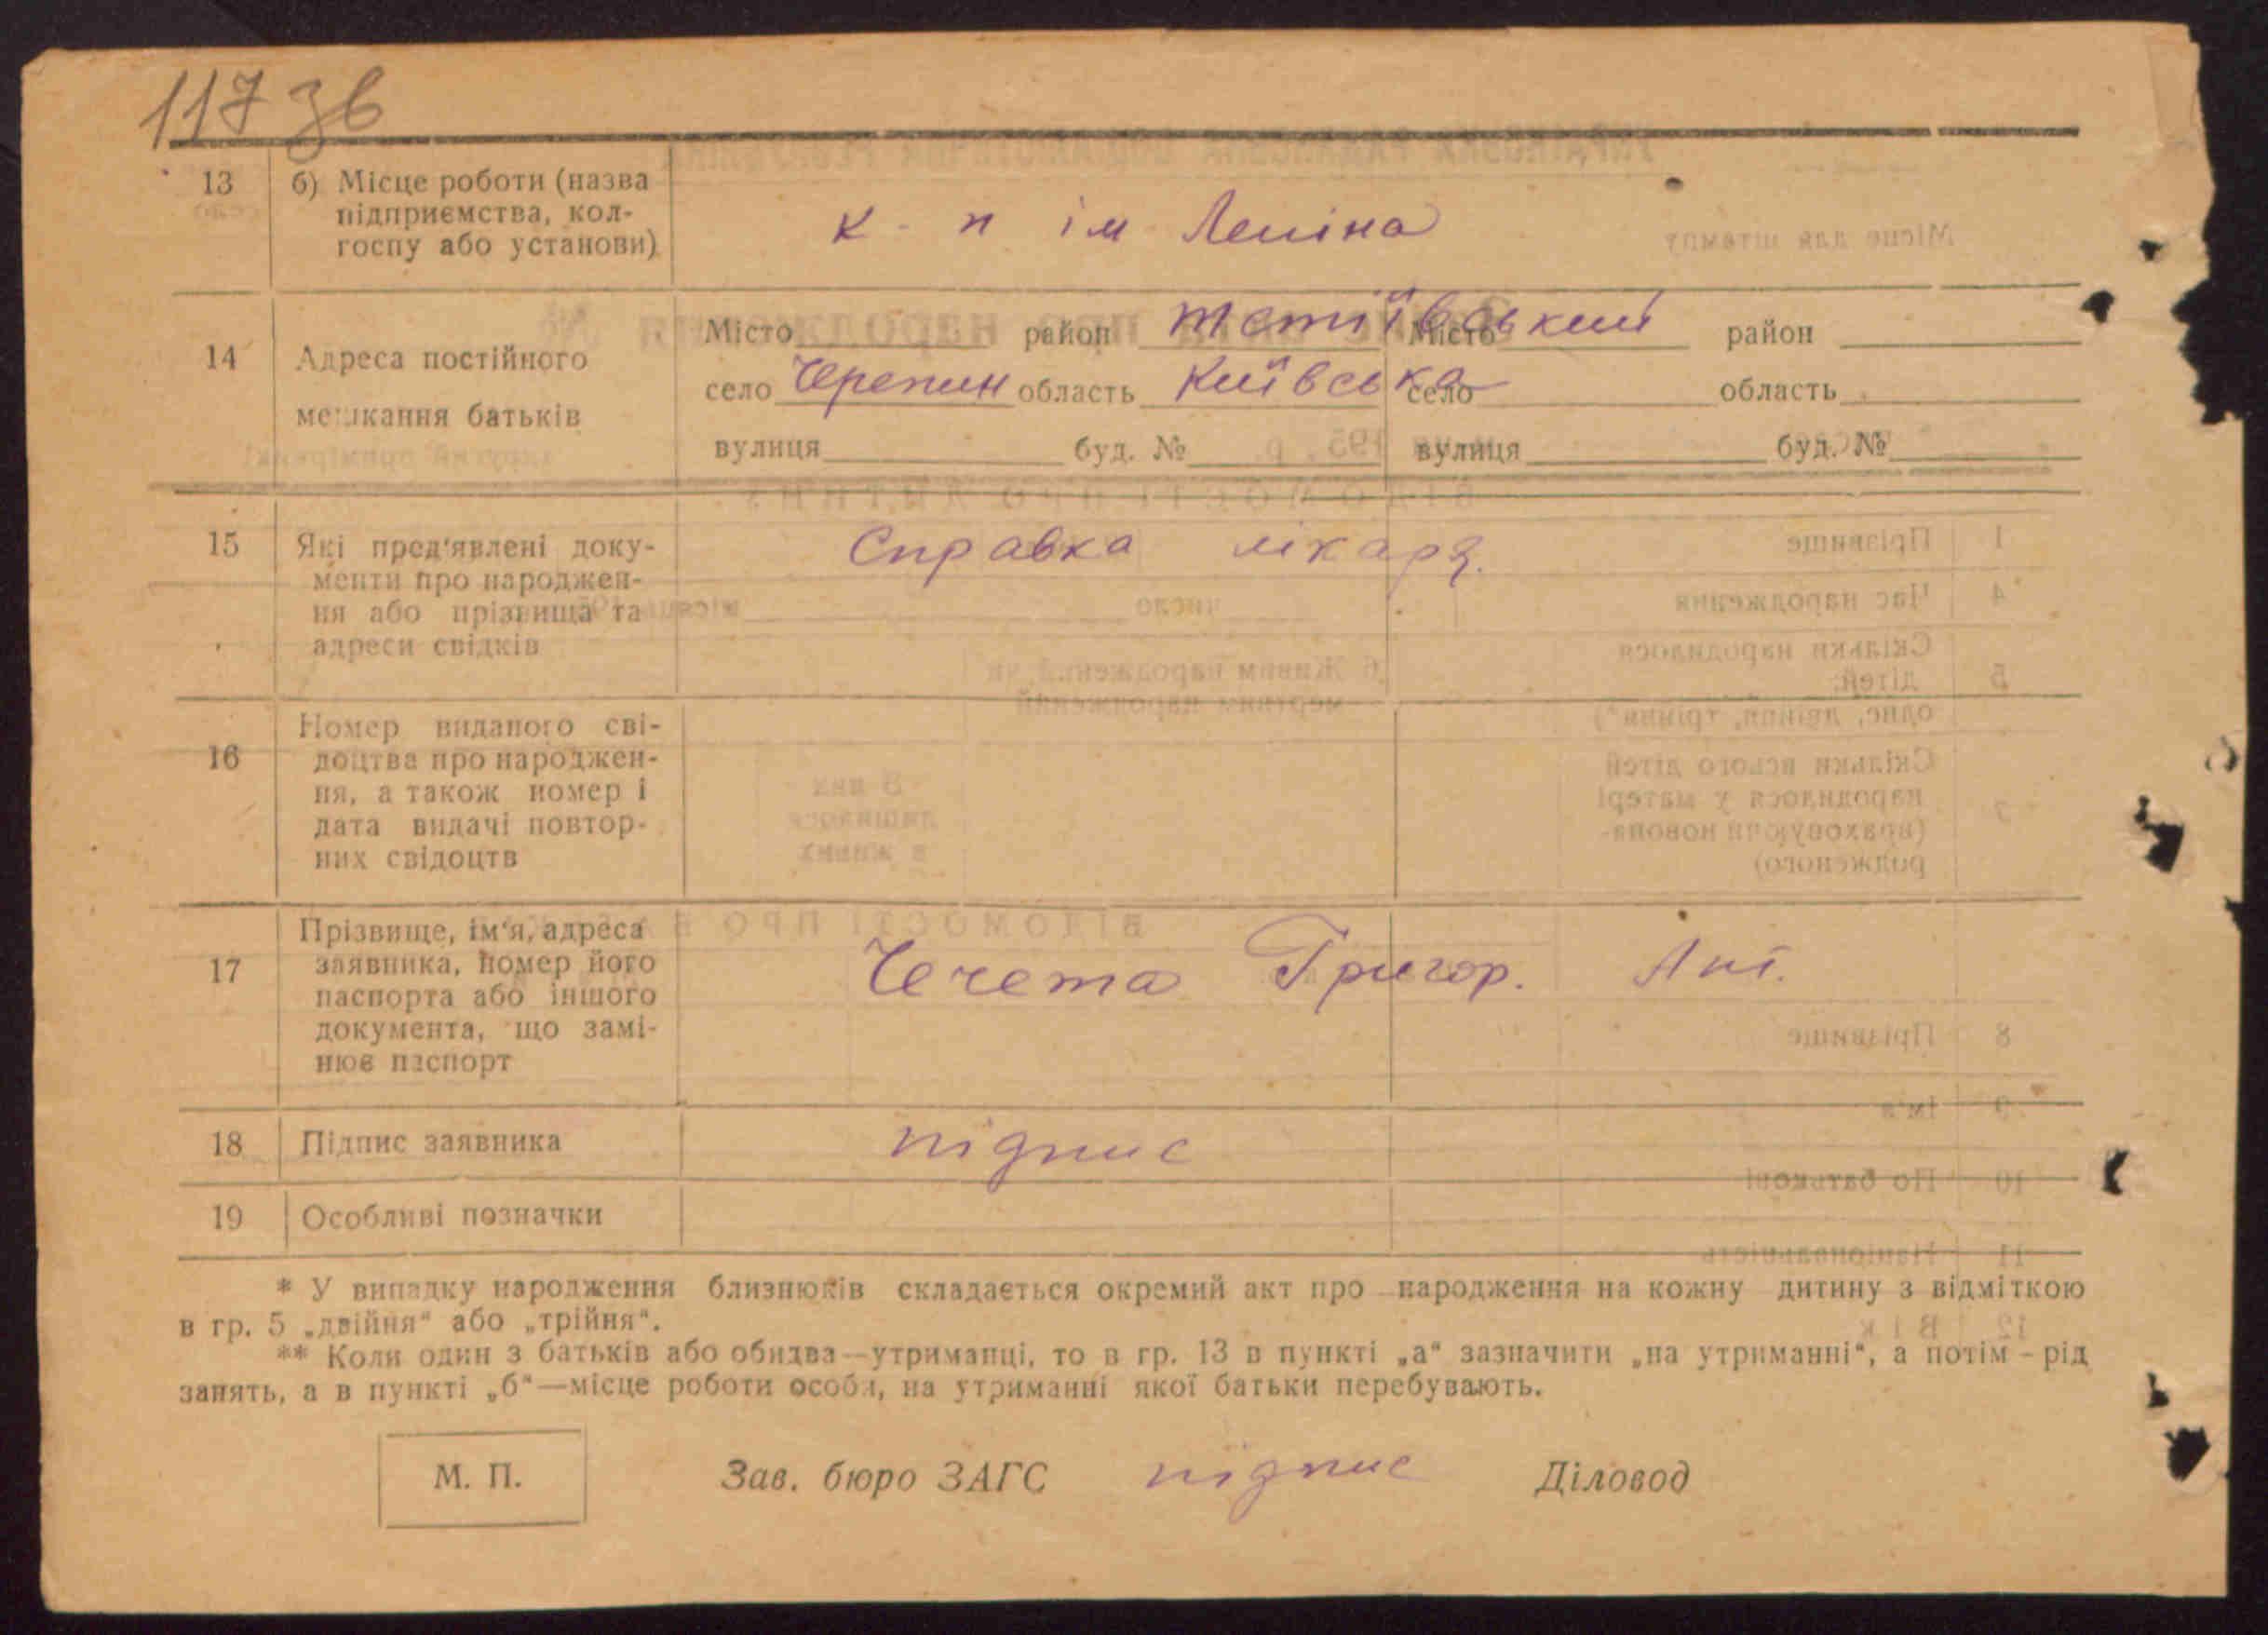 117 зв
13 б) Місце роботи (назва
підприємства, кол-
госпу або установи)
к-п ім Леніна
14 Адреса постійного
мешкання батьків
Місто район Тетіївський Місто район
село Черепин область Київська село область
вулиця буд. № вулиця буд. №
15 Які пред'явлені доку-
менти про народжен-
ня або прізвища та
адреси свідків
Справка лікаря.
16 Номер виданого сві-
доцтва про народжен-
ня, а також номер і
дата видачі повтор-
них свідоцтв
17 Прізвище, ім'я, адреса
заявника, номер його
паспорта або іншого
документа, що замі-
нює паспорт
Чечета Григор. Ант.
18 Підпис заявника підпис
19 Особливі позначки
* У випадку народження близнюків складається окремий акт про народження на кожну дитину з відміткою
в гр. 5 „двійня“ або „трійня“.
** Коли один з батьків або обидва—утриманці, то в гр. 13 в пункті „а“ зазначити „на утриманні“, а потім - рід
занять, а в пункті „б“—місце роботи особи, на утриманні якої батьки перебувають.
М. П. Зав. бюро ЗАГС підпис Діловод